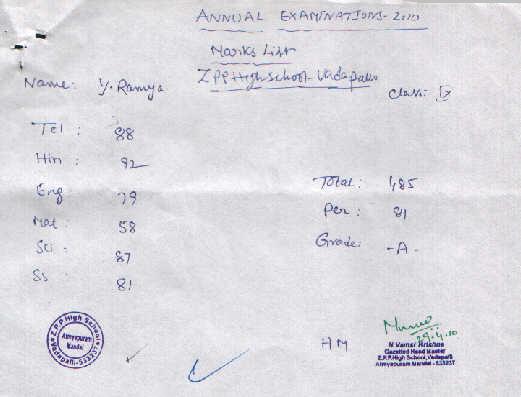 ANNUAL EXAMINATIONS-2010
Marks List
ZPPHighschool-Vadapalli
Name: Y. Ramya
class: IX
Tel : 88
Hin : 92
Eng : 79
Mat : 58
Sci : 87
Ss : 81
Total: 485
per : 81
Grade: -A-
Z.P.P High School
Atreyapuram
Mandal
HM
29.4.10
Gazetted Head Master
Z.P.P.High School, Vadapalli
Atreyapuram Mandal - 533237